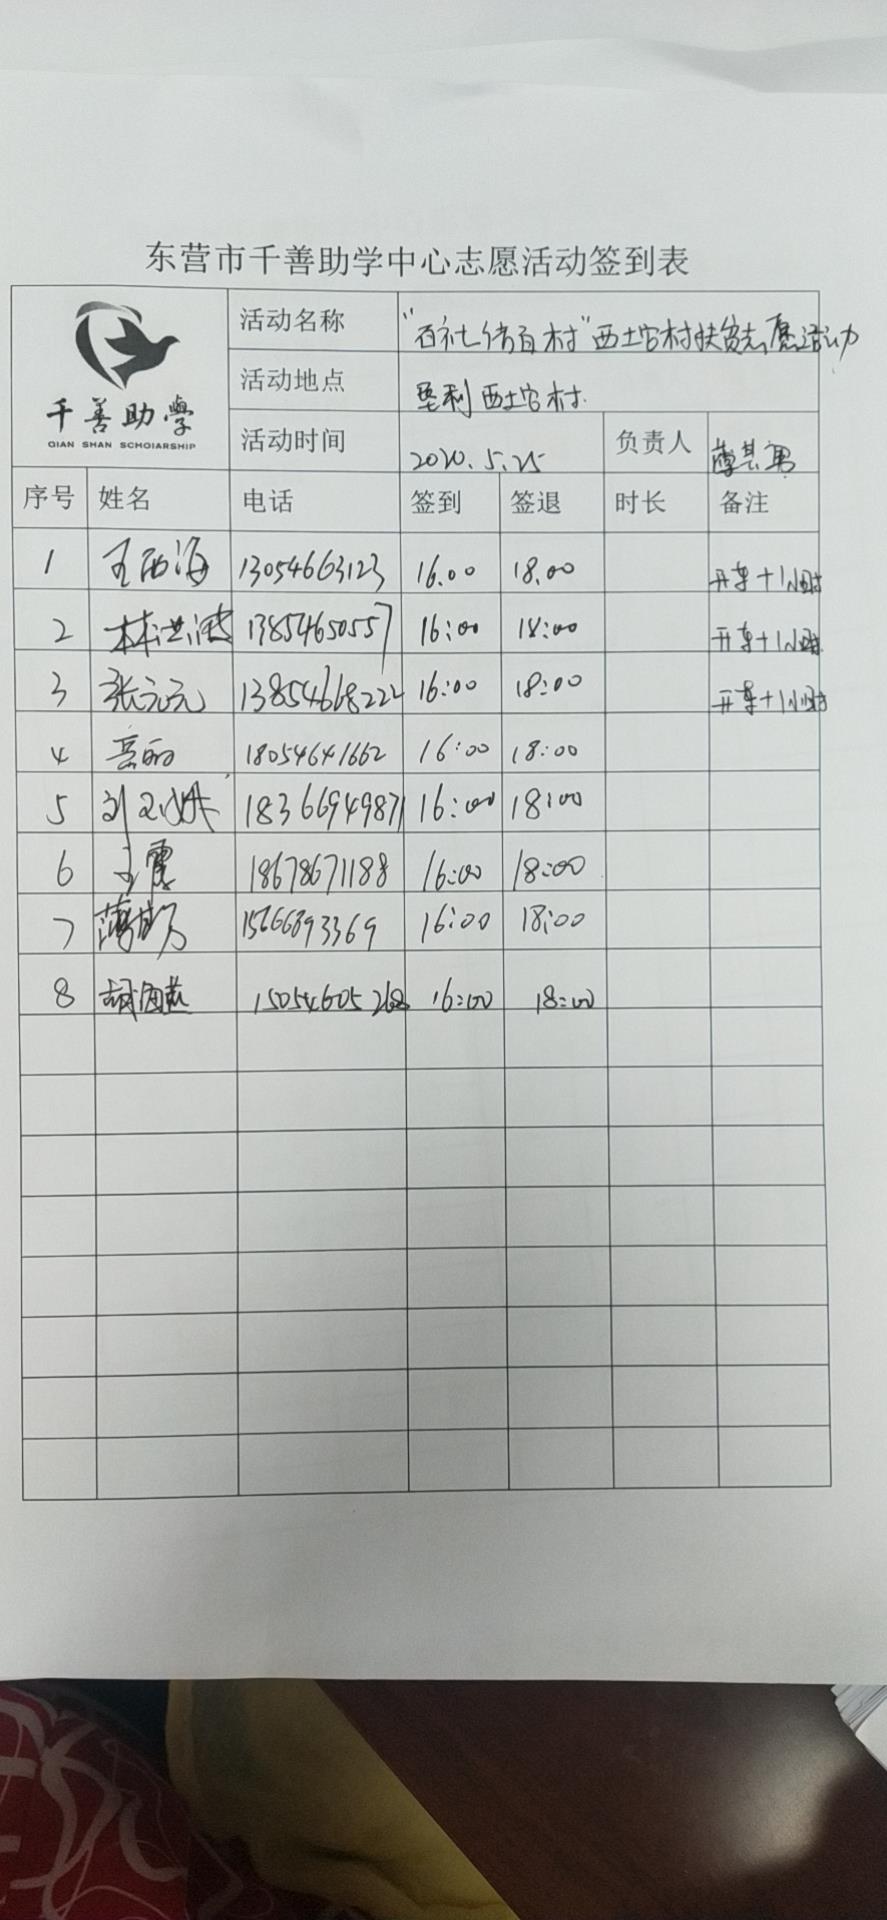 东营市千善助学中心志愿活动签到表
千善助學
QIAN SHAN SCHOIARSHIP
活动名称 "百社结百村"西土官村扶贫志愿活动
活动地点 垦利西土官村
活动时间 2020.5.25 负责人
序号 姓名 电话 签到 签退 时长 备注
1 王西海 13054663123 16.00 18.00 开车+1小时
2 林洪波 13854650557 16:00 18:00 开车+1小时
3 张元元 13854668222 16:00 18:00 开车+1小时
4 18054641662 16:00 18:00
5 18366949871 16:00 18:00
6 王震 18678671188 16:00 18:00
7 15666893369 16:00 18:00
8 胡海燕 15054605268 16:00 18:00